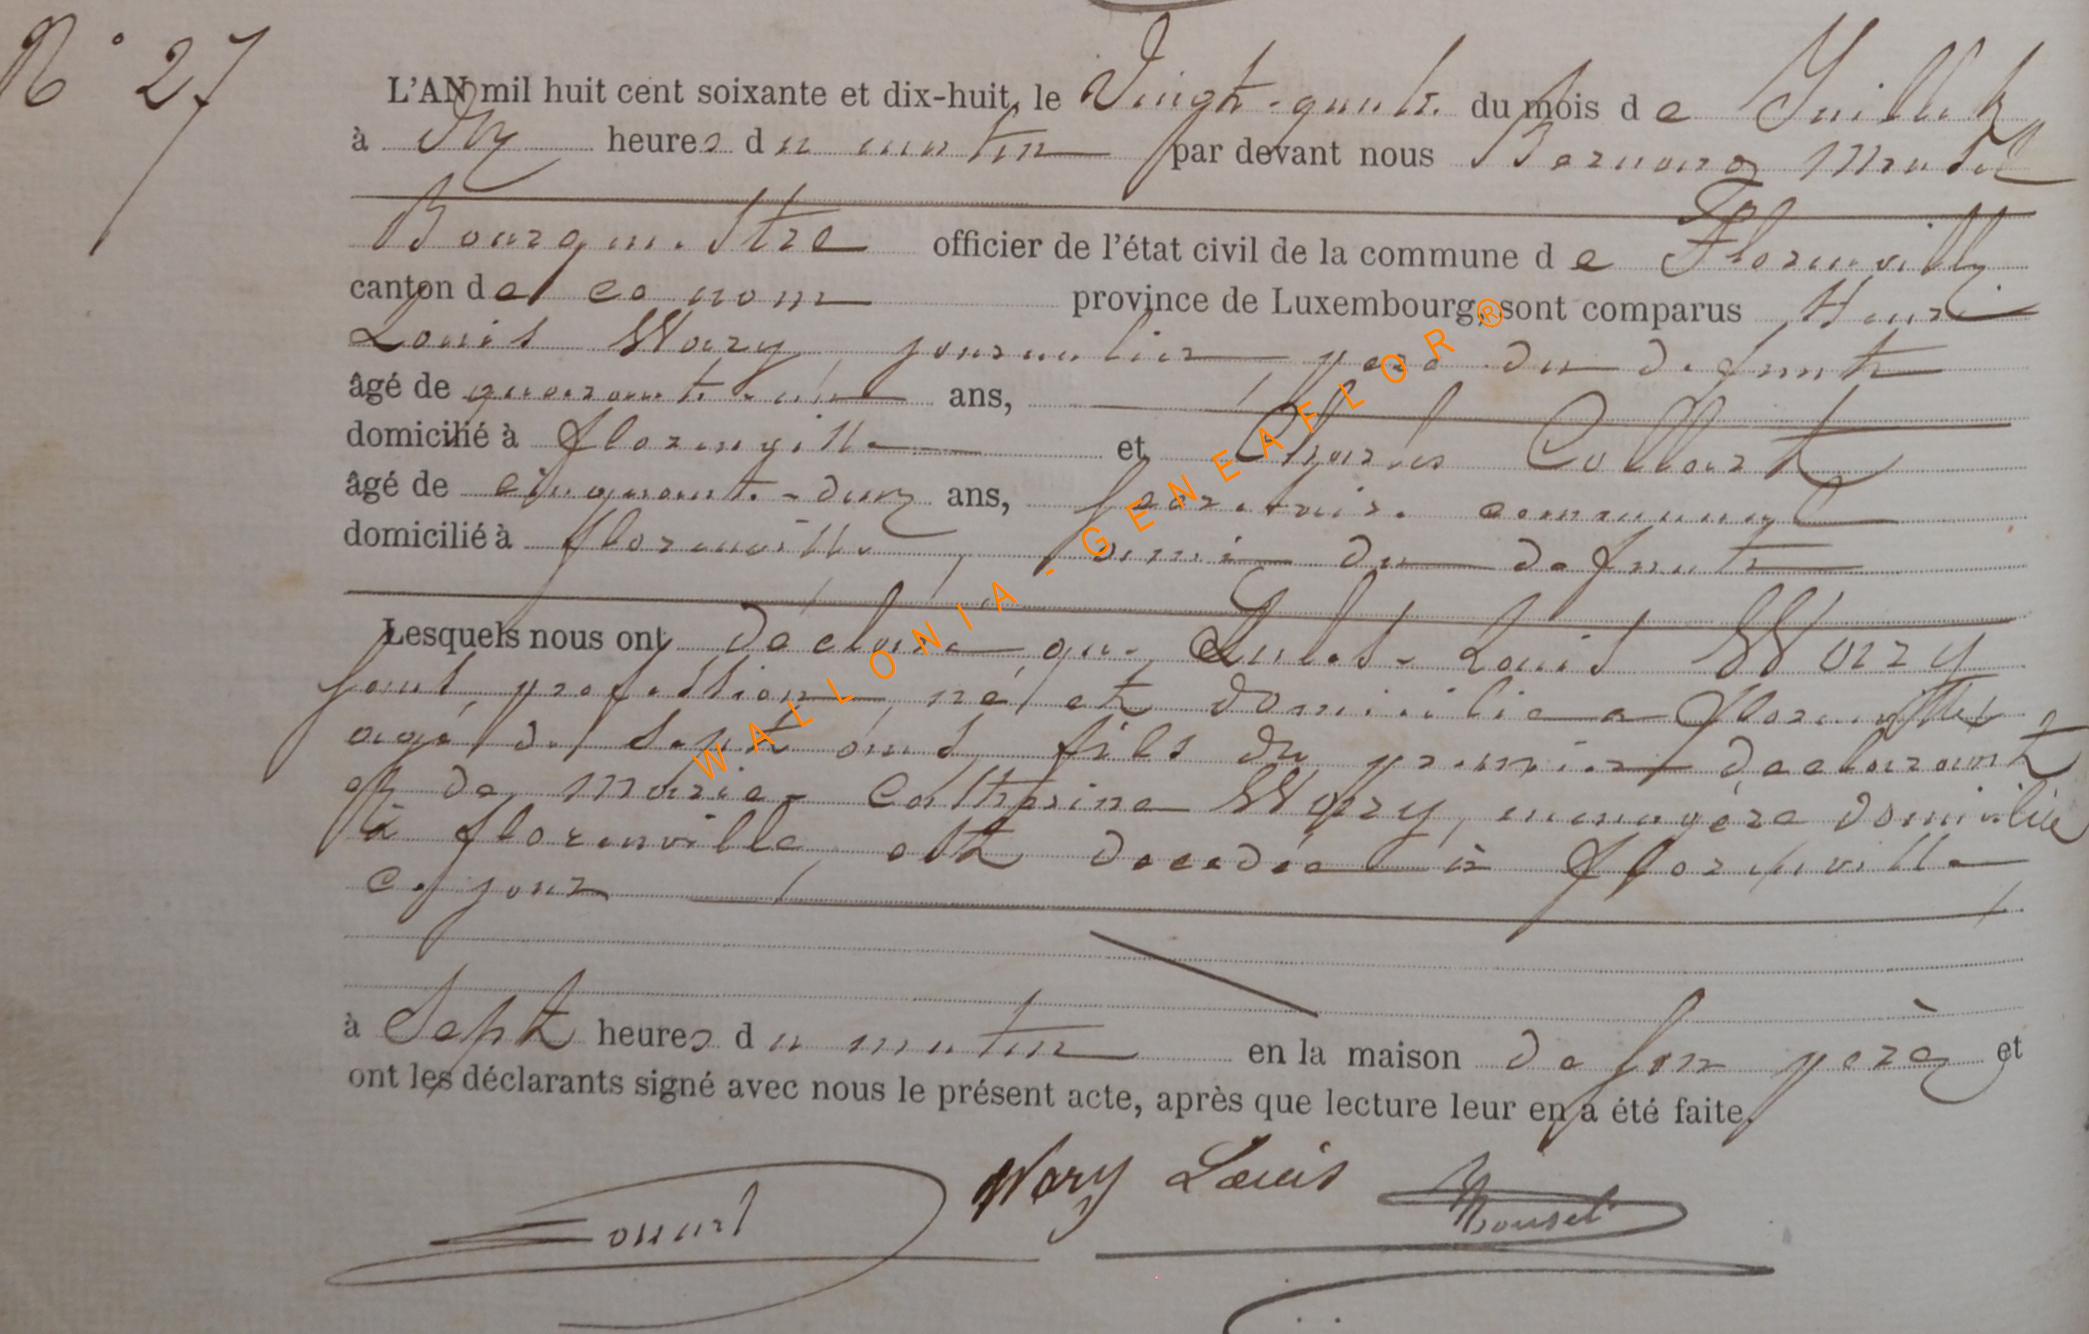 N° 27
L'AN mil huit cent soixante et dix-huit, le Vingt-quatre du mois de Juillet
à Dix heures du matin par devant nous Bernard
Bourgmestre officier de l'état civil de la commune de Florenville
canton de ce nom province de Luxembourg, sont comparus Henri
Louis Wary, journalier, père du défunt
âgé de quarante ans,
domicilié à florenville et Charles Collart
âgé de cinquante-deux ans, secrétaire communal
domicilié à florenville, ami du défunt
Lesquels nous ont déclaré que Jules-Louis Wary
sans profession, né et domicilié à florenville
agé de Sept ans, fils du premier déclarant
et de Marie-Catherine Wary, menagère domiciliée
à florenville, est décédé à florenville
ce jour
à Sept heures du matin en la maison de son père et
ont les déclarants signé avec nous le présent acte, après que lecture leur en a été faite.
Wary Louis
WALLONIA-GENEAFLOR®